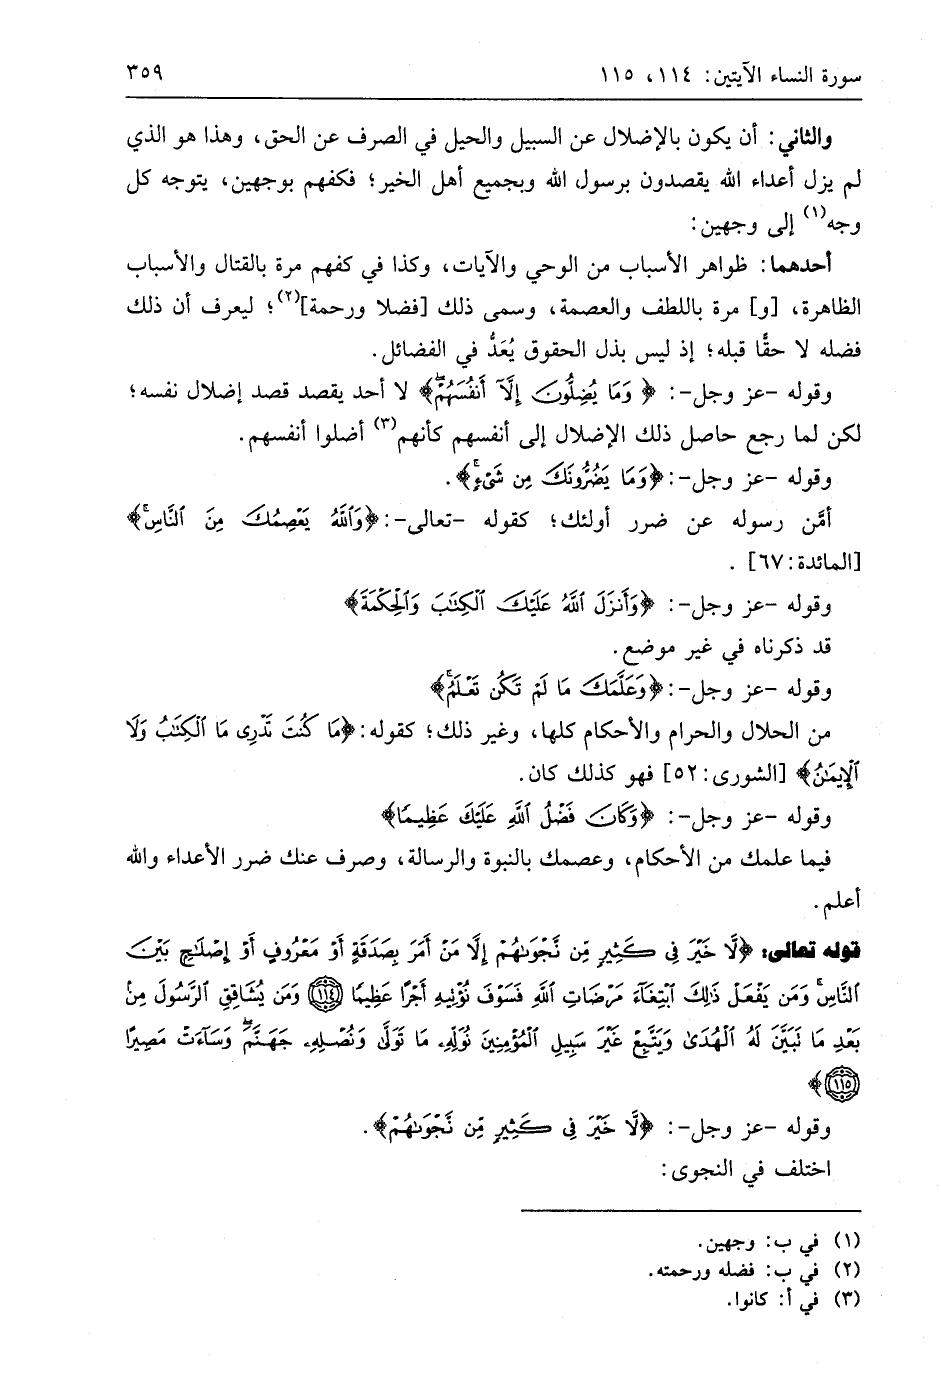 سورة النساء الآيتين: ١١٤، ١١٥ ٣٥٩
والثاني: أن يكون بالإضلال عن السبيل والحيل في الصرف عن الحق، وهذا هو الذي
لم يزل أعداء الله يقصدون برسول الله وبجميع أهل الخير؛ فكفهم بوجهين، يتوجه كل
وجه(١) إلى وجهين:
أحدهما: ظواهر الأسباب من الوحي والآيات، وكذا في كفهم مرة بالقتال والأسباب
الظاهرة، [و] مرة باللطف والعصمة، وسمى ذلك [فضلا ورحمة](٢)؛ ليعرف أن ذلك
فضله لا حقًّا قبله؛ إذ ليس بذل الحقوق يُعَدُّ في الفضائل.
وقوله -عز وجل-: ﴿وَمَا يُضِلُّونَ إِلَّآ أَنفُسَهُمْۖ﴾ لا أحد يقصد قصد إضلال نفسه؛
لكن لما رجع حاصل ذلك الإضلال إلى أنفسهم كأنهم(٣) أضلوا أنفسهم.
وقوله -عز وجل-: ﴿وَمَا يَضُرُّونَكَ مِن شَىْءٍۚ﴾.
أمَّن رسوله عن ضرر أولئك؛ كقوله -تعالى-: ﴿وَٱللَّهُ يَعْصِمُكَ مِنَ ٱلنَّاسِۚ﴾
[المائدة: ٦٧] .
وقوله -عز وجل-: ﴿وَأَنزَلَ ٱللَّهُ عَلَيْكَ ٱلْكِتَٰبَ وَٱلْحِكْمَةَ﴾
قد ذكرناه في غير موضع.
وقوله -عز وجل-: ﴿وَعَلَّمَكَ مَا لَمْ تَكُن تَعْلَمُۚ﴾
من الحلال والحرام والأحكام كلها، وغير ذلك؛ كقوله: ﴿مَا كُنتَ تَدْرِى مَا ٱلْكِتَٰبُ وَلَا
ٱلْإِيمَٰنُ﴾ [الشورى: ٥٢] فهو كذلك كان.
وقوله -عز وجل-: ﴿وَكَانَ فَضْلُ ٱللَّهِ عَلَيْكَ عَظِيمًا﴾
فيما علمك من الأحكام، وعصمك بالنبوة والرسالة، وصرف عنك ضرر الأعداء والله
أعلم.
قوله تعالى: ﴿لَّا خَيْرَ فِى كَثِيرٍ مِّن نَّجْوَىٰهُمْ إِلَّا مَنْ أَمَرَ بِصَدَقَةٍ أَوْ مَعْرُوفٍ أَوْ إِصْلَٰحٍۭ بَيْنَ
ٱلنَّاسِۚ وَمَن يَفْعَلْ ذَٰلِكَ ٱبْتِغَآءَ مَرْضَاتِ ٱللَّهِ فَسَوْفَ نُؤْتِيهِ أَجْرًا عَظِيمًا ١١٤ وَمَن يُشَاقِقِ ٱلرَّسُولَ مِنۢ
بَعْدِ مَا تَبَيَّنَ لَهُ ٱلْهُدَىٰ وَيَتَّبِعْ غَيْرَ سَبِيلِ ٱلْمُؤْمِنِينَ نُوَلِّهِۦ مَا تَوَلَّىٰ وَنُصْلِهِۦ جَهَنَّمَۖ وَسَآءَتْ مَصِيرًا
١١٥﴾
وقوله -عز وجل-: ﴿لَّا خَيْرَ فِى كَثِيرٍ مِّن نَّجْوَىٰهُمْ﴾.
اختلف في النجوى:
(١) في ب: وجهين.
(٢) في ب: فضله ورحمته.
(٣) في أ: كانوا.